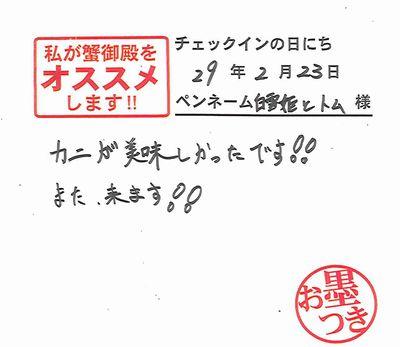 私が蟹御殿を
オススメ
します!!
チェックインの日にち
29年2月23日
ペンネーム白雪姫とトム様
カニが美味しかったです!!
また、来ます!!
お墨
つき